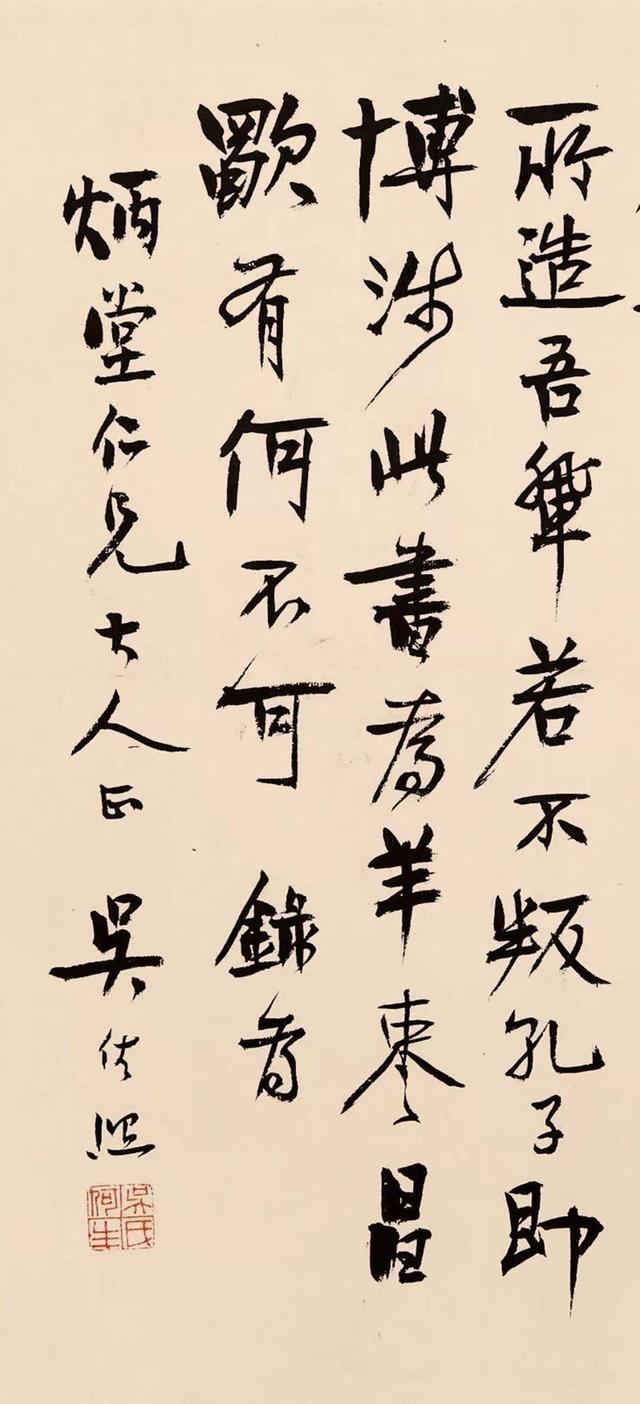 所造吾輩若不叛孔子即
博涉此書為羊棗昌
歜有何不可 錄為
炳堂仁兄大人正 吳
吳氏何生